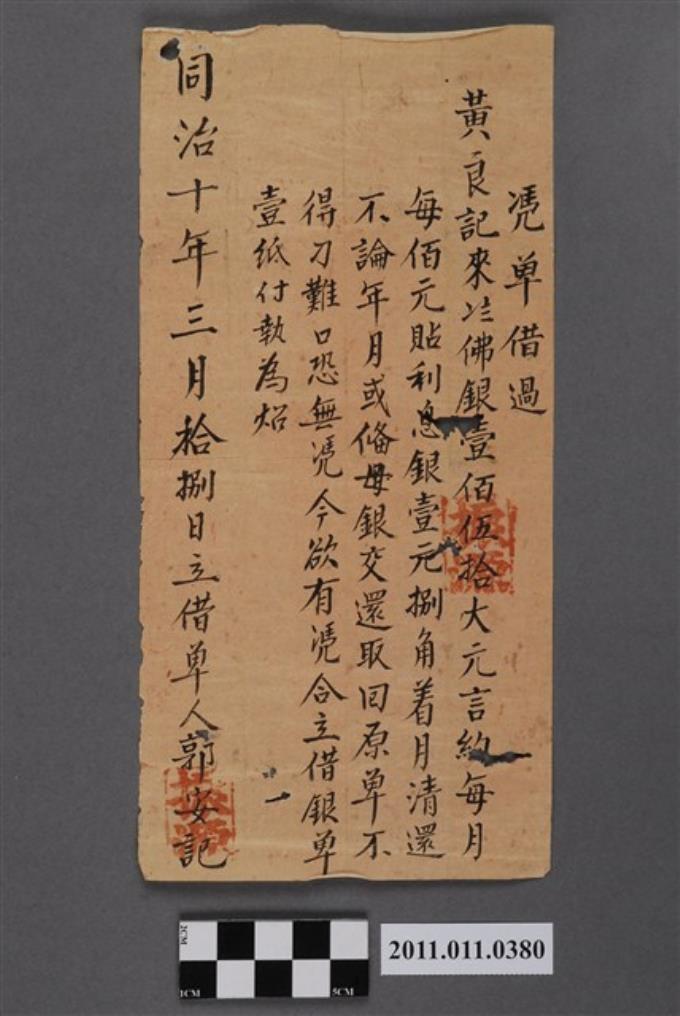 憑单借過
黃良記來㳒佛銀壹佰伍拾大元言約每月
每佰元貼利息銀壹元捌角着月清還
不論年月或俻母銀交還取回原单不
得刁難口恐無憑今欲有憑合立借銀单
壹紙付執為炤
同治十年三月拾捌日立借单人郭安記
2CM
1CM
5CM
2011.011.0380